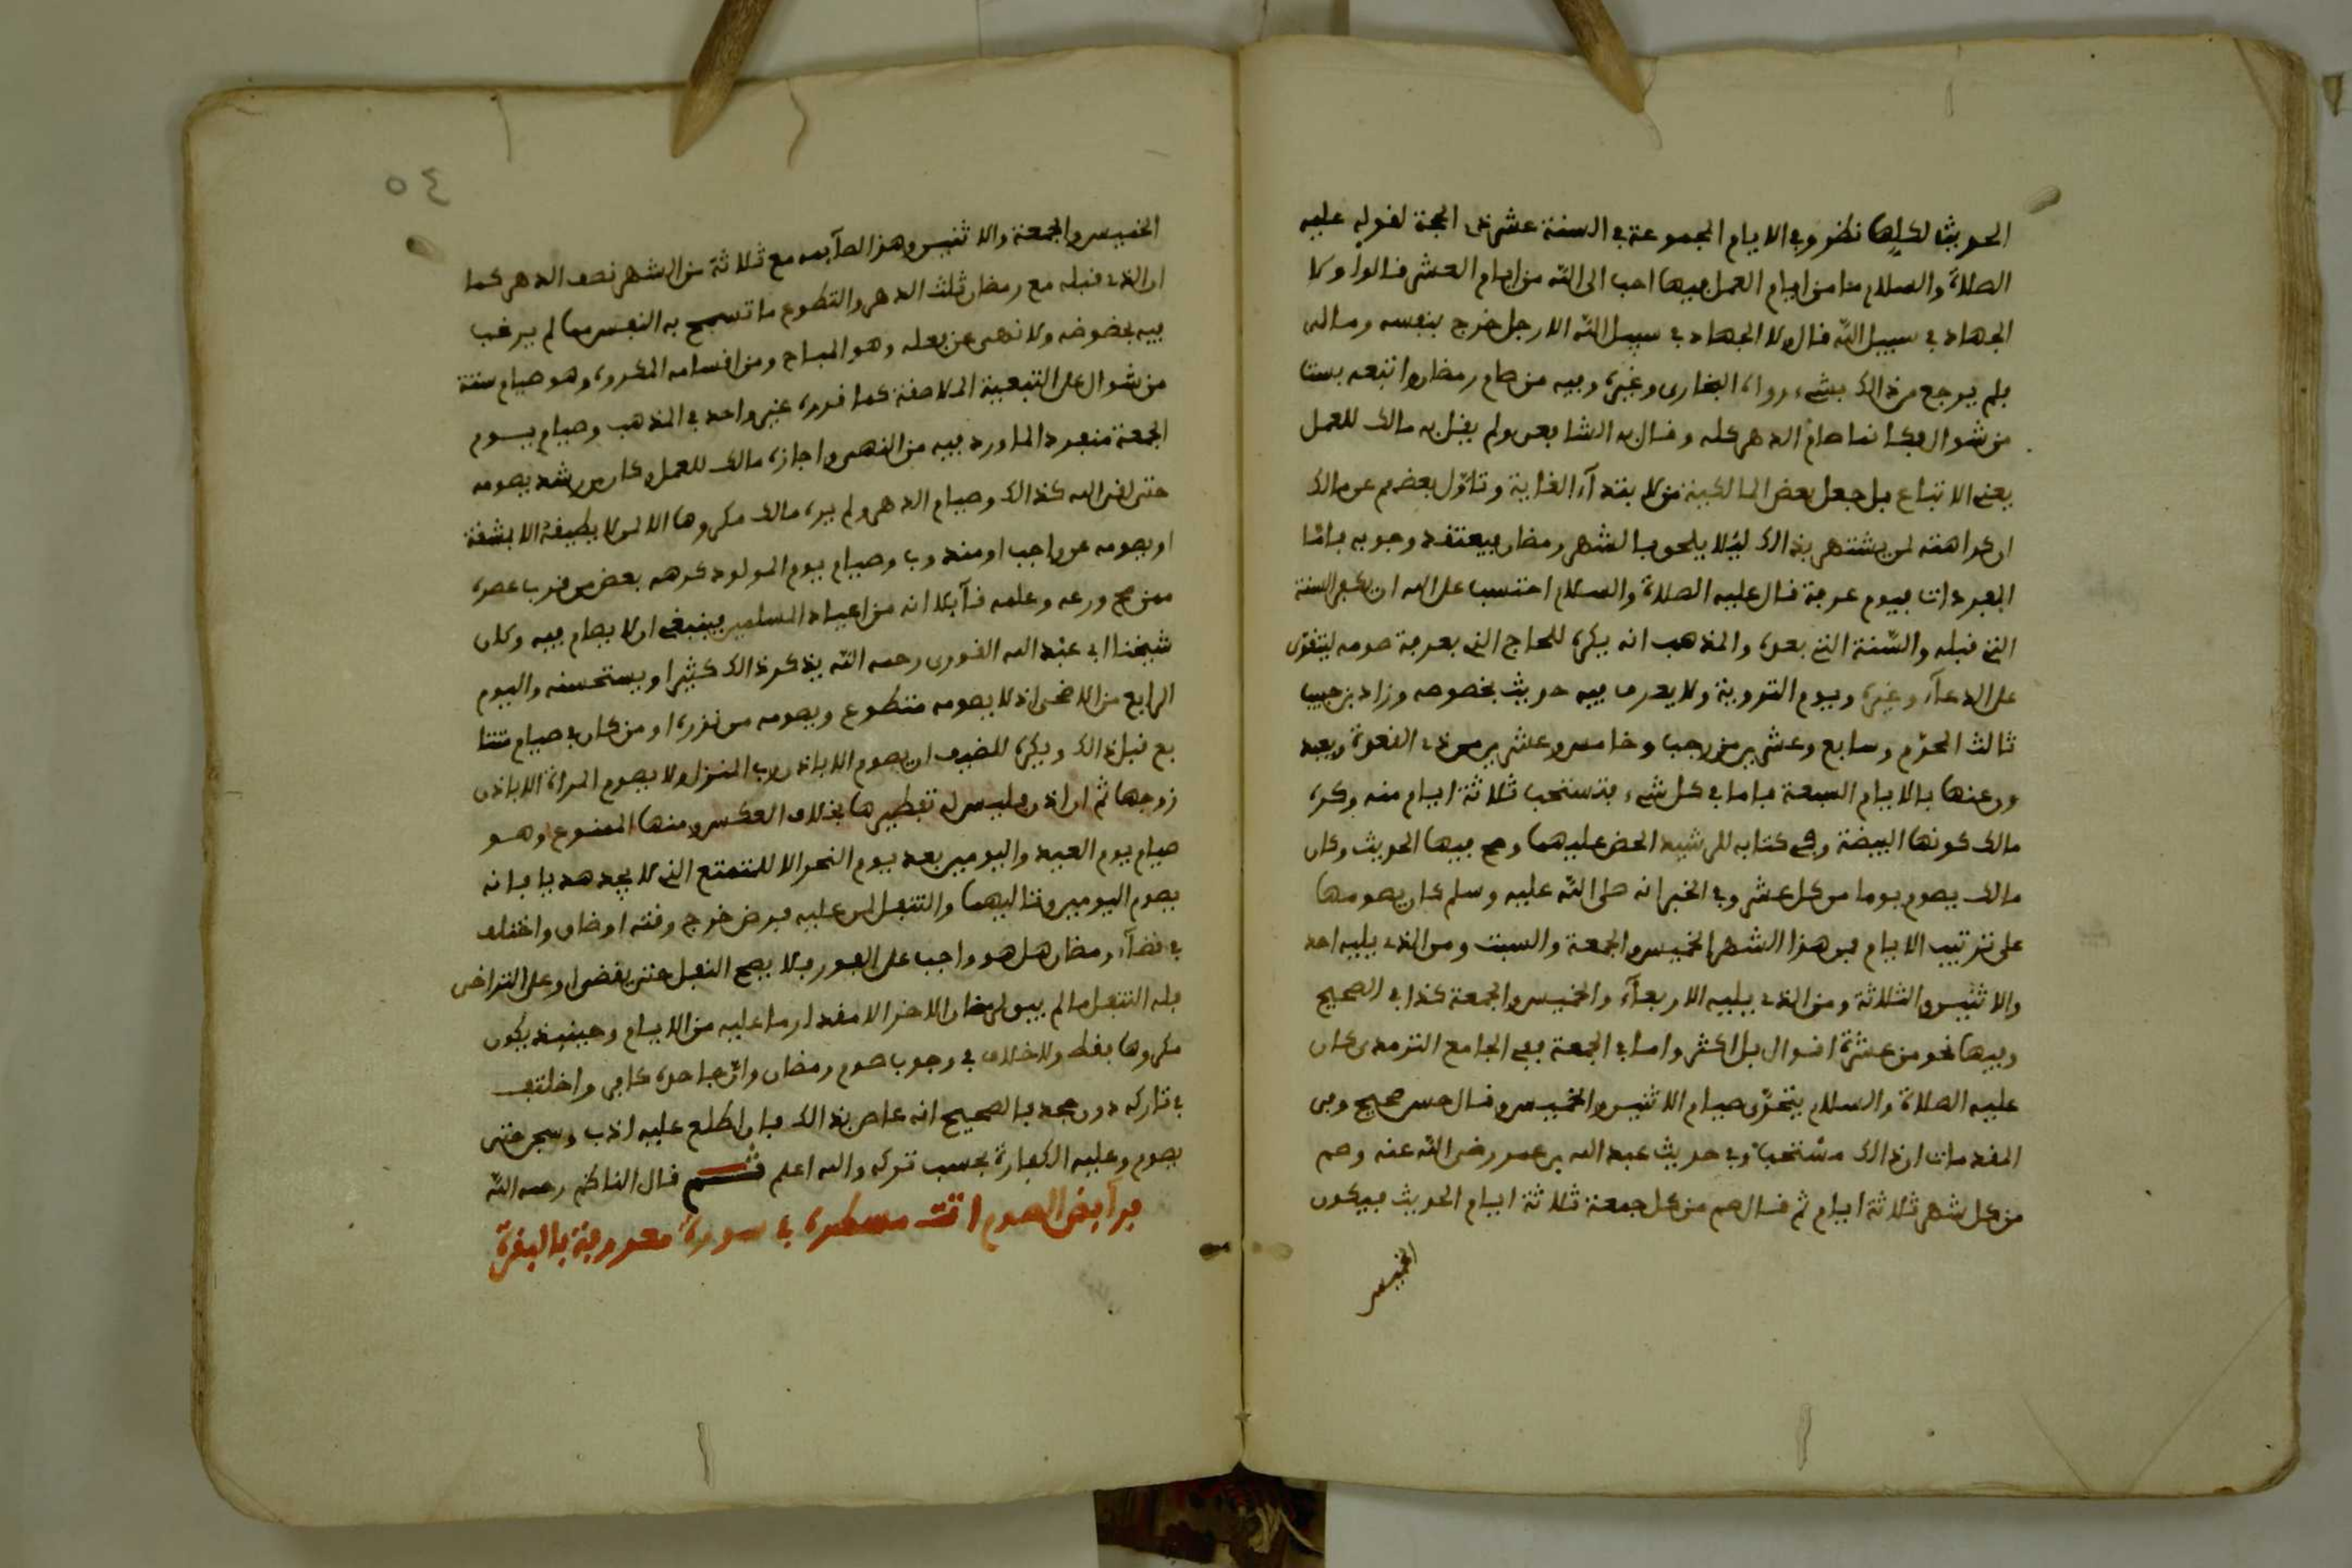 الحديث لكليها نظر وفي الايام المجموعة في السنة عشر ذى الحجة لقوله عليه
الصلاة والسلام ما من ايام العمل فيها احب الى الله من ايام العشر قالوا ولا
الجهاد في سبيل الله قال ولا الجهاد في سبيل الله الا رجل خرج بنفسه وماله
فلم يرجع من ذالك بشىء رواه البخارى وغيره وفيه من صام رمضان واتبعه بست
من شوال فكانما صام الدهر كله وقال به الشافعى ولم يقل به مالك للعمل
يعنى الاتباع بل جعل بعض المالكية من لابتدآء الغاية وتاول بعضهم عن مالك
ان كراهته لمن يشتهر بذالك ليلا يلحق بالشهر رمضان فيعتقد وجوبه باما
المفردات فيوم عرفة قال عليه الصلاة والسلام احتسب على الله ان يكفر السنة
التى قبله والسنة التى بعده والمذهب انه يكره للحاج التى بعرفة صومه ليتقوى
على الدعآء وغيره ويوم التروية ولا يعرف فيه حديث بخصوصه وزاد بن حبيب
ثالث المحرم وسابع وعشرين من رجب وخامس وعشرين من ذى القعدة وبعد
ورعنها بالايام السبعة باما في كل شىء فتستحب ثلاثة ايام منه وكره
مالك كونها البيضة وفى كتابه للرشيد الحض عليهما وصح فيها الحديث وكان
مالك يصوم يوما من كل عشر وفي الخبر انه صلى الله عليه وسلم كان يصومها
على ترتيب الايام فمن هذا الشهر الخميس والجمعة والسبت ومن الذى يليه احد
والاثنين والثلاثة ومن الذى يليه الاربعآء والخميس والجمعة كذا في الصحيح
وفيها نحو من عشرة اقوال بل اكثر واما في الجمعة ففى الجامع الترمذى كان
عليه الصلاة والسلام يتحرى صيام الاثنين والخميس وقال حسن صحيح وفى
المقدمات ان ذالك مستحب وفي حديث عبد الله بن عمر رضى الله عنه وصم
من كل شهر ثلاثة ايام ثم قال صم من كل جمعة ثلاثة ايام الحديث فيكون
الخميس
٥٤
الخميس والجمعة والاثنين وهذا الصآيمه مع ثلاثة من الشهر نصف الدهر كما
ان الذى قبله مع رمضان ثلث الدهر والتطوع ما تسمح به النفس مما لم يرغب
فيه بخصوصه ولا نهى عن فعله وهو المباح ومن اقسامه المكروه وهو صيام ستة
من شوال على التبعية الملاصقة كما قرره غير واحد في المذهب وصيام يوم
الجمعة منفرد الما ورد فيه من النهى واجازه مالك للعمل وكان بن رشد يصومه
حتى لقى الله كذالك وصيام الدهر ولم يره مالك مكروها الا لمن لا يطيقه الا بمشقة
او يصومه عن واجب او مندوب وصيام يوم المولود كرهه بعض من قرب عصره
ممن صح ورعه وعلمه قآيلا انه من اعياد المسلمين فينبغى ان لا يصام فيه وكان
شيخنا ابى عبد الله القورى رحمه الله يذكر ذالك كثيرا ويستحسنه واليوم
الرابع من الاضحى اذ لا يصومه متطوع ويصومه من نذره او من كان في صيام متتا
بع قبل ذالك ويكره للضيف ان يصوم الا باذن رب المنزل ولا يصوم المراة الا باذن
زوجها ثم ان اذن فليس له تفطيرها بخلاف العكس ومنها الممنوع وهو
صيام يوم العيد واليومين بعد يوم النحر الا للمتمتع الذى لا يجد هديا فانه
يصوم اليومين وتاليهما والتنفل لمن عليه فرض خرج وقته او ضاق واختلف
في قضآء رمضان هل هو واجب على الفور فلا يصح النفل حتى يقضى او على التراخى
فله التنفل ما لم يبق لرمضان الاخر الا مقدار ما عليه من الايام وحينيذ يكون
مكروها فقط ولا خلاف في وجوب صوم رمضان وان جاحده كافر واختلف
في تاركه دون جحد فالصحيح انه عاص بذالك فان اطلع عليه ادب وسجن حتى
يصوم وعليه الكفارة بحسب تركه والله اعلم ثم قال الناظم رحمه الله
فرآيض الصوم اتت مسطره في سورة معروفة بالبقرة